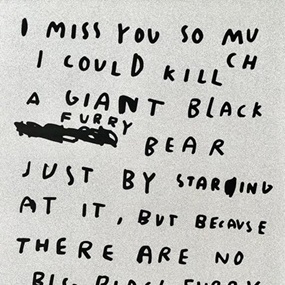 I MISS YOU SO MU
CH
I COULD KILL
A GIANT BLACK
FURRY
BEAR
JUST BY STARING
AT IT, BUT BECAUSE
THERE ARE NO
BIG BLACK FURRY